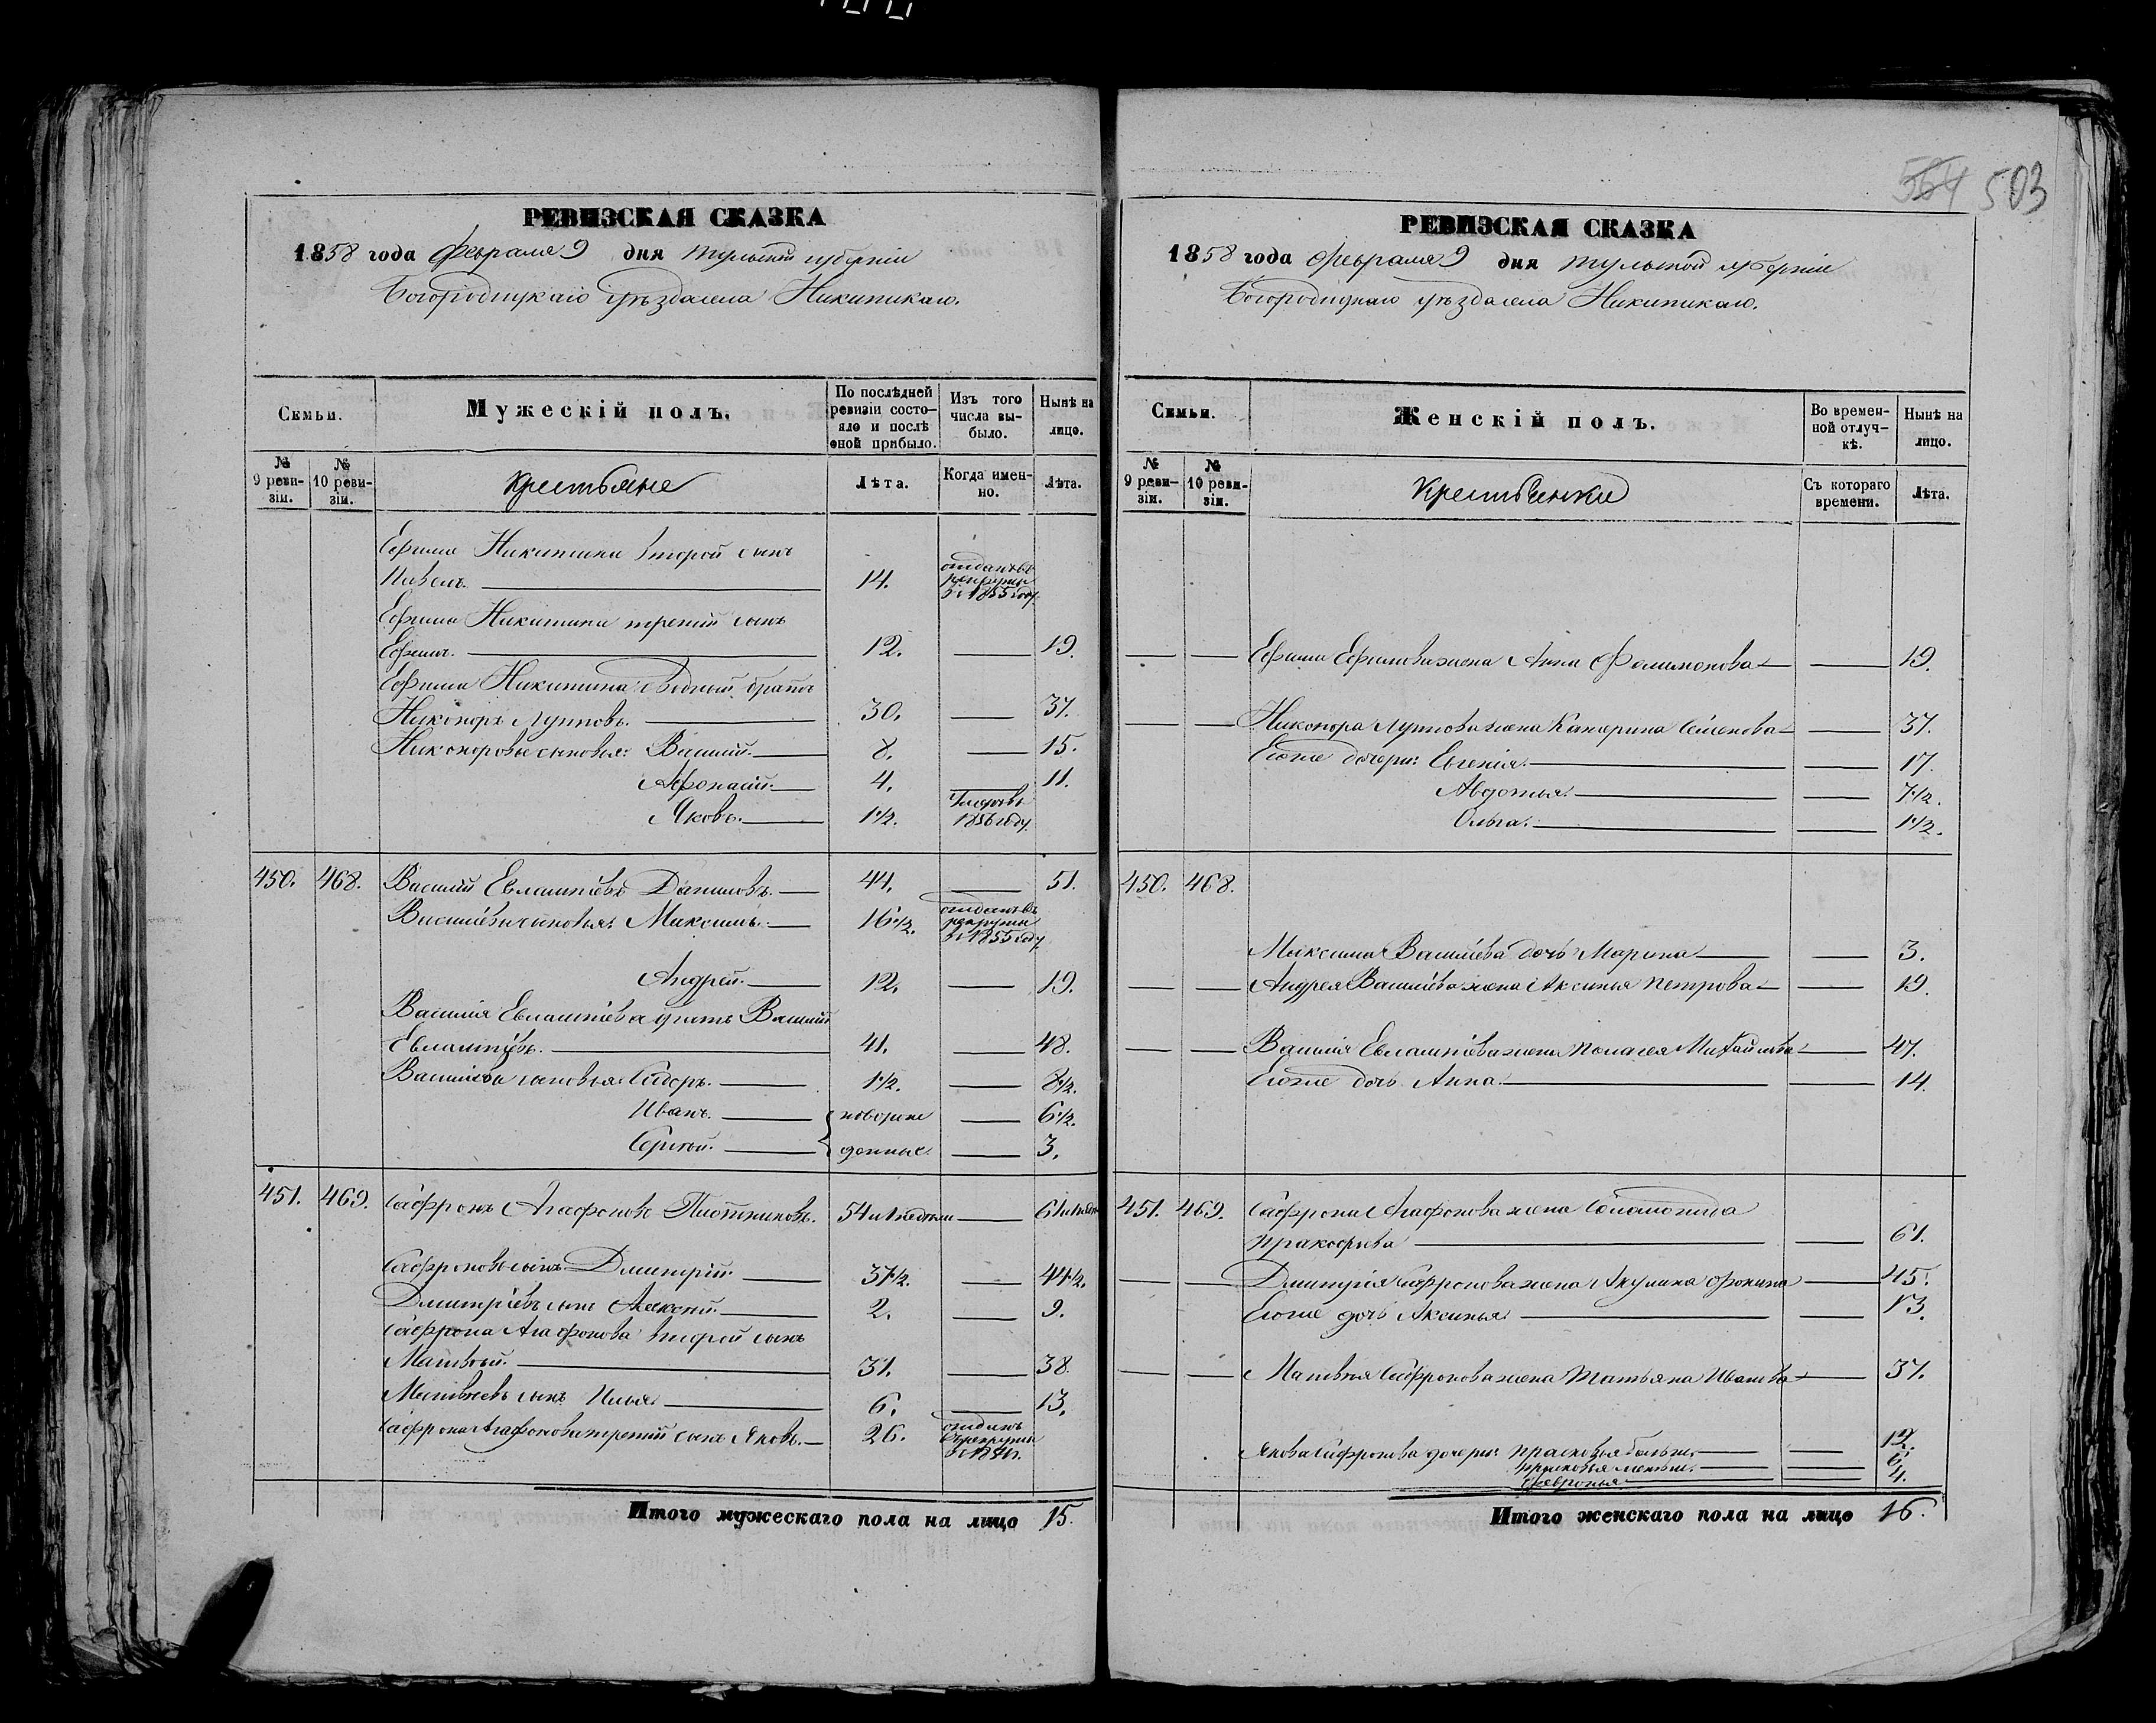 564 503
РЕВИЗСКАЯ СКАЗКА
1858 года Февраля 9 дня Тульской губерніи
Богородицкаго уѣзда села Никитскаго.
Семьи.
Мужескій полъ.
По послѣдней ревизіи состояло и послѣ оной прибыло.
Изъ того числа выбыло.
Нынѣ на лицо.
№ 9 ревизіи.
№ 10 ревизіи.
Крестьяне
Лѣта.
Когда именно.
Лѣта.
Ефима Никитина второй сынъ
Павелъ. 14. отданъ въ рекруты въ 1855 году.
Ефима Никитина третій сынъ
Ефимъ. 12. 19.
Ефима Никитина братъ
Никоноръ Лупповъ. 30. 37.
Никоноровы сыновья: Василій. 8. 15.
Афонасій. 4. 11.
Яковъ. 1 1/2. Умеръ въ 1856 году.
450. 468. Василій Евлампіевъ Даниловъ. 44. 51.
Васильевы сыновья: Максимъ. 16 1/2. отданъ въ рекруты въ 1855 году.
Андрей. 12. 19.
Василія Евлампіева братъ Василій
Евлампіевъ. 41. 48.
Васильевы сыновья: Сидоръ. 1 1/2. 8 1/2.
Иванъ. новорож 6 1/2.
Сергѣй. денные. 3.
451. 469. Сафронъ Агафоновъ Плотниковъ. 54
Сафроновъ сынъ Дмитрій. 37 1/2. 44 1/2.
Дмитріевъ сынъ Алексѣй. 2. 9.
Сафрона Агафонова второй сынъ
Матвѣй. 31. 38.
Матвѣевъ сынъ Илья. 6. 13.
Сафрона Агафонова третій сынъ Яковъ. 26. отданъ въ рекруты
Итого мужескаго пола на лицо 15.
РЕВИЗСКАЯ СКАЗКА
1858 года Февраля 9 дня Тульской губерніи
Богородицкаго уѣзда села Никитскаго.
Семьи.
Женскій полъ.
Во временной отлучкѣ.
Нынѣ на лицо.
№ 9 ревизіи.
№ 10 ревизіи.
Крестьянки
Съ котораго времени.
Лѣта.
Ефима Ефимова жена Анна Фолимонова 19.
Никонора Луппова жена Катерина Семенова 37.
Егоже дочери: Евгенія. 17.
Авдотья. 7 1/2.
Ольга. 1 1/2.
450. 468.
Максима Васильева дочь Марина 3.
Андрея Васильева жена Аксинья Петрова 19.
Василія Евлампіева жена Пелагея Михайлова 47.
Егоже дочь Анна. 14.
451. 469. Сафрона Агафонова жена Соломонида
Пракофьева 61.
Дмитрія Сафронова жена Акулина Фокина 45.
Егоже дочь Аксинья 13.
Матвѣя Сафронова жена Татьяна Иванова 37.
Якова Сафронова дочери: Прасковья больш. 12.
Прасковья меньш. 6.
Февронья 4.
Итого женскаго пола на лицо 16.